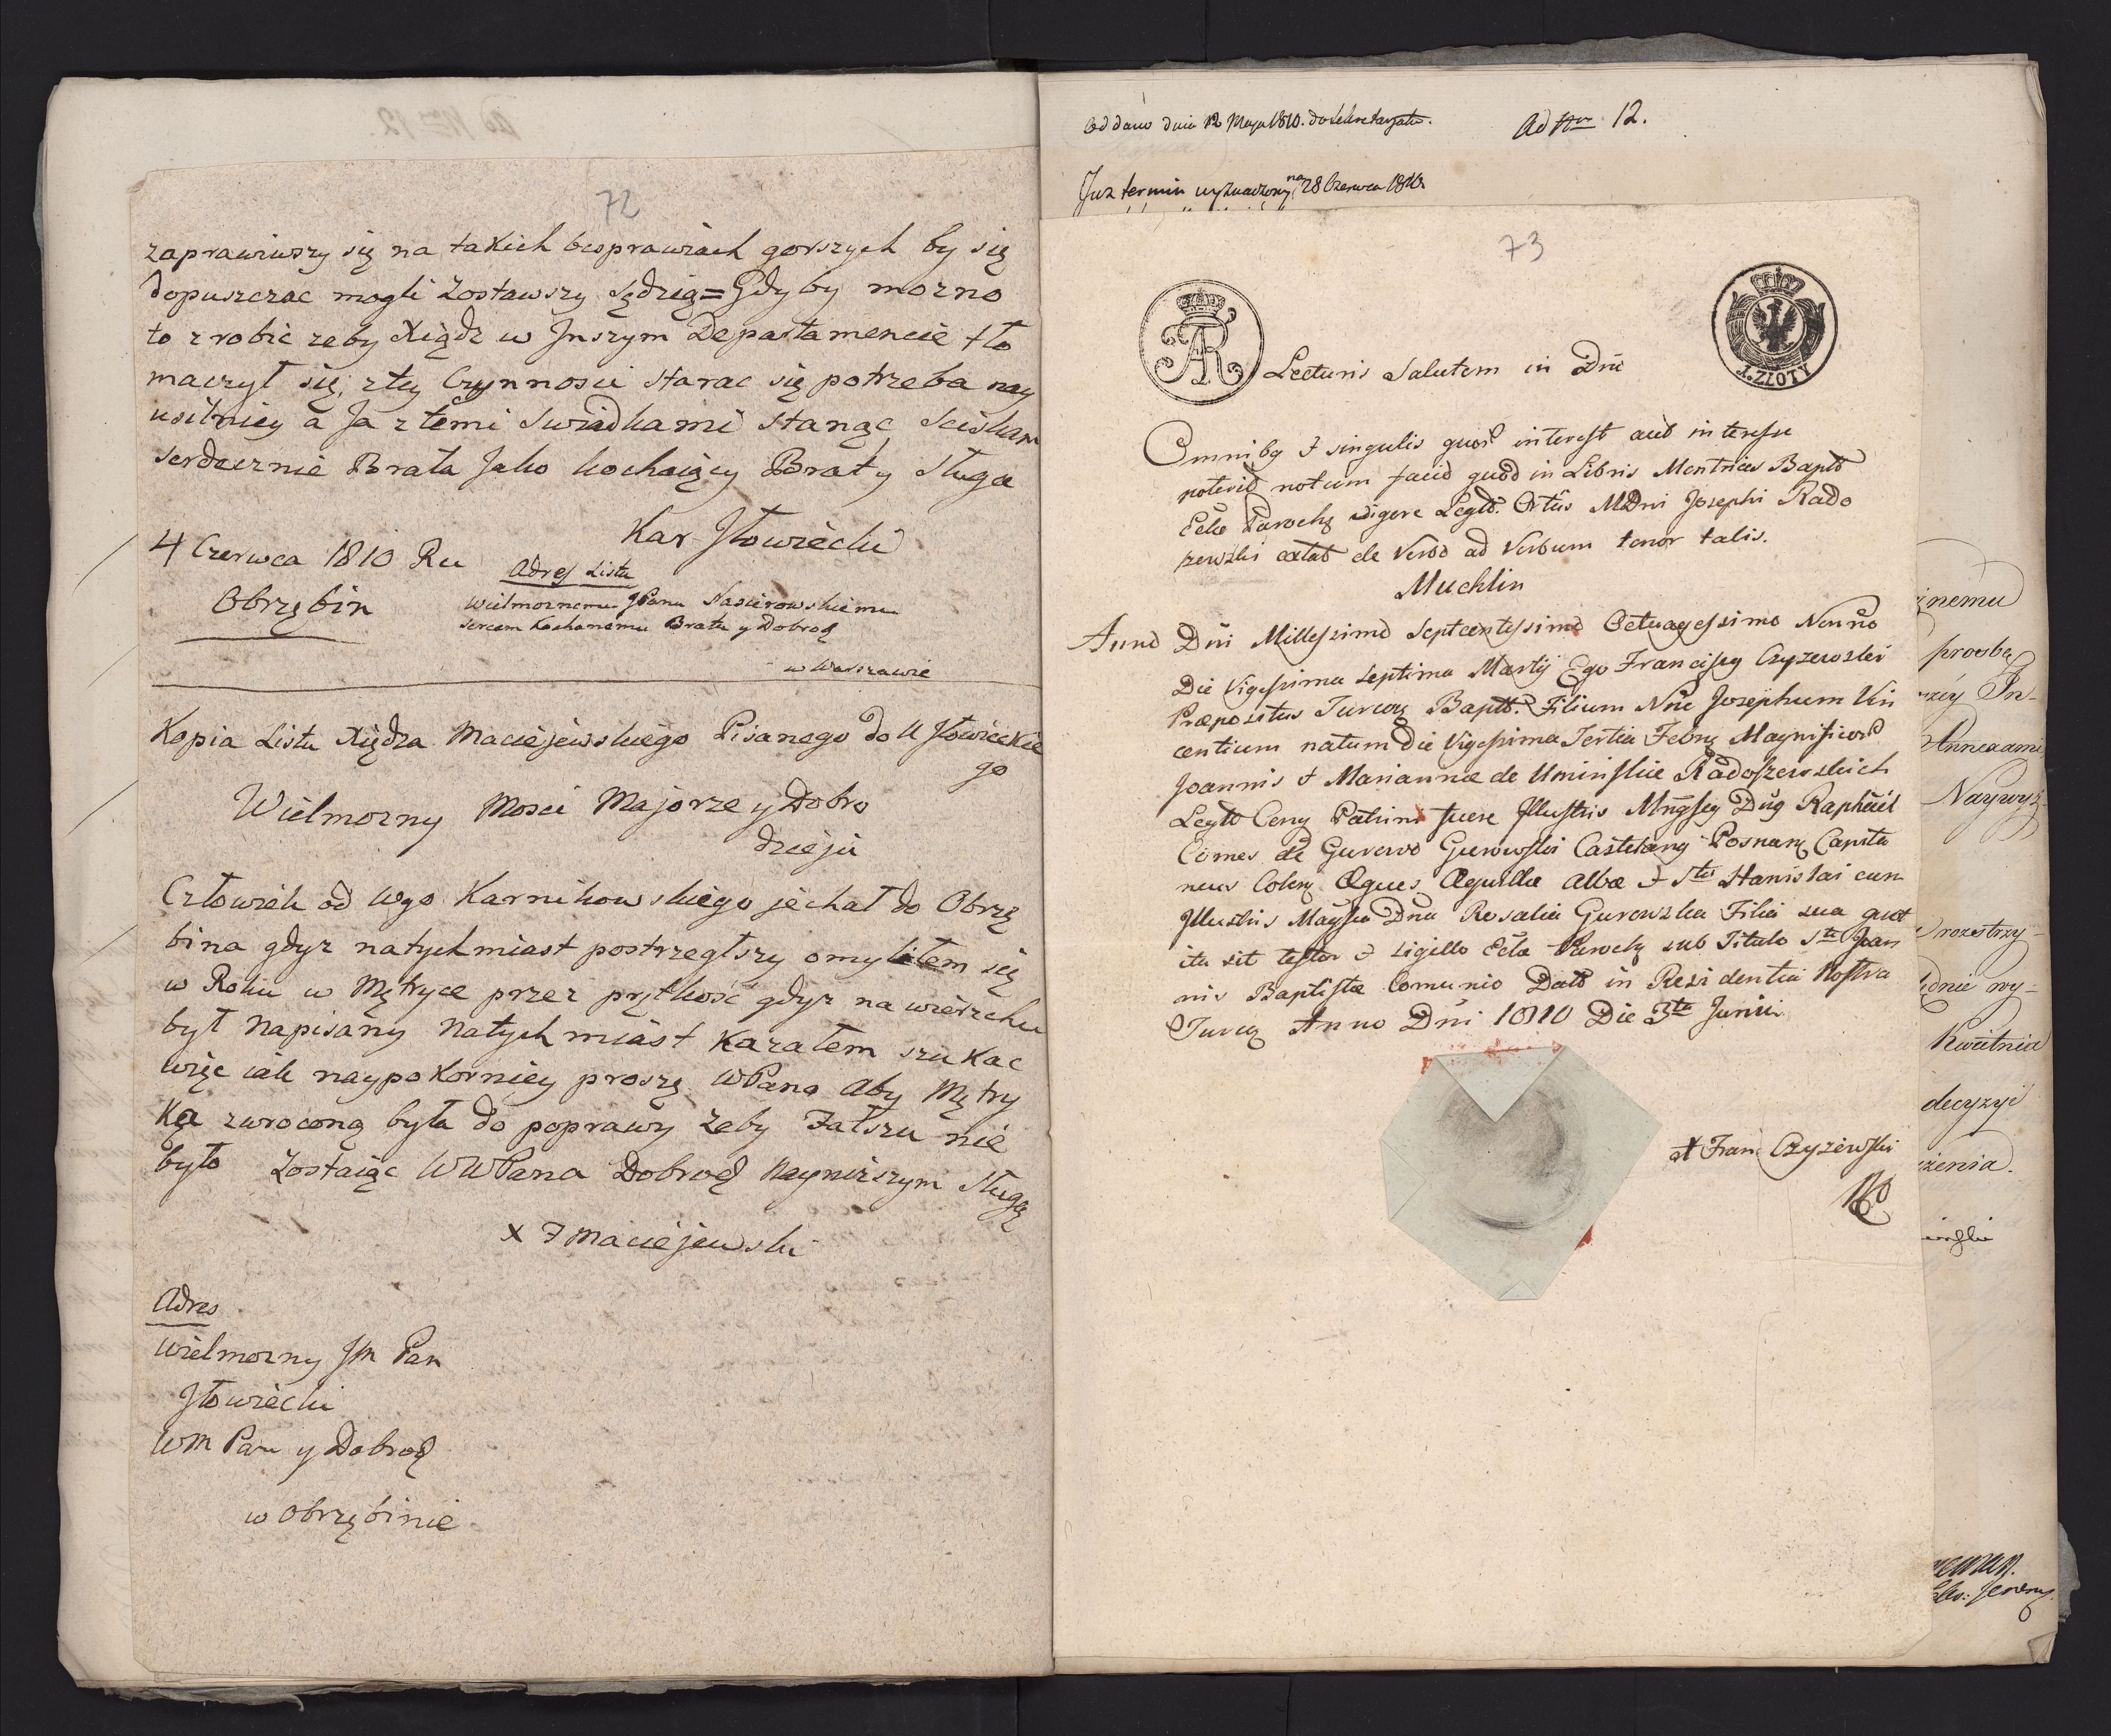 72
zaprawiwszy się na takich besprawiach gorszych by się
dopuszczac mogli Zostawszy Sędzią = Gdyby mozno
to zrobic zeby Xiądz w Jnszym Departamencie tło
maczył się, z tey Czynnosci starac się potrzeba nay
usilniey a Ja z temi Swiadkami stanąc Sciskam
serdecznie Brata Jako kochaiący Brat y Sługa
Kar Jłowiecki
4 Czerwca 1810 Ru
Obrzębin
Adres Listu
Wielmoznemu JPanu
sercem Kochanemu Bratu y Dobrod
w Warszawie
Kopia Listu Xiędza Maciejewskiego Pisanego do U Jłowieckie
go
Wielmozny Mosci Majorze y Dobro
dzieju
Człowiek od Wgo Karnikowskiego jechał do Obrzę
bina gdyz natychmiast postrzegłszy omyliłem się
w Roku w Mętryce przez prętkość gdyz na wierzchu
był Napisany Natychmiast Kazałem szukac
więc iak naypokorniey proszę WPana Aby Mętry
Ka zwroconą była do poprawy zeby Fałszu nie
było Zostaiąc WWPana Dobrod Nayniszym Sługą
X F Maciejewski
Adres
Wielmozny Jm Pan
Jłowiecki
WM Pan y Dobrod
w Obrzębinie
Oddano dnia 12 Maja 1810. do Sekretaryatu.
Ad Nrm 12.
Juz termin wyznaczony na 28 Czerwca 1810
73
AR
1. ZŁOTY
Lecturis Salutem in Dno
Omnibg & singulis quor interest aut interesse
poterit notum facio quod in Libris Metrices Bapto
Eclæ Paroch Legto Ortus MDni Josephi Rado
zewski extat de Verbo ad Verbum tenor talis.
Muchlin
Anno Dni Millessimo Septcentessimo Octuagessimo Nonno
Die Vigessima Septima Martij Ego Franciscg Czyzewski
Præpositus Turcov Bapto. Filium Nne Josephum Vin
centium natum Die Vigessima Tertia Febru Magnificor
Joannis & Mariannæ de Uminskie Radoszewskich
Legto Patrini fuere Jllustris Dng Raphael
Comes de Gurowo Gurowski Castelang Posnan Capita
neus Colen Eques Aquillæ Albæ & Sti Stanislai cum
Jllustris Magfca Dna Rosalia Gurowska Filia sua quot
ita sit testor & sigillo Eclæ Paroch sub Titulo Sti Joan
nis Baptistæ Comunio Dato in Residentia Nostra
Turcov Anno Dni 1810 Die 3tia Junii
X Fran Czyzewski
znemu
prosbę
Jn-
Annexami
Naywyz
rozestrzy-
ędnie wy-
Kwietnia
decyzyi
żenia.